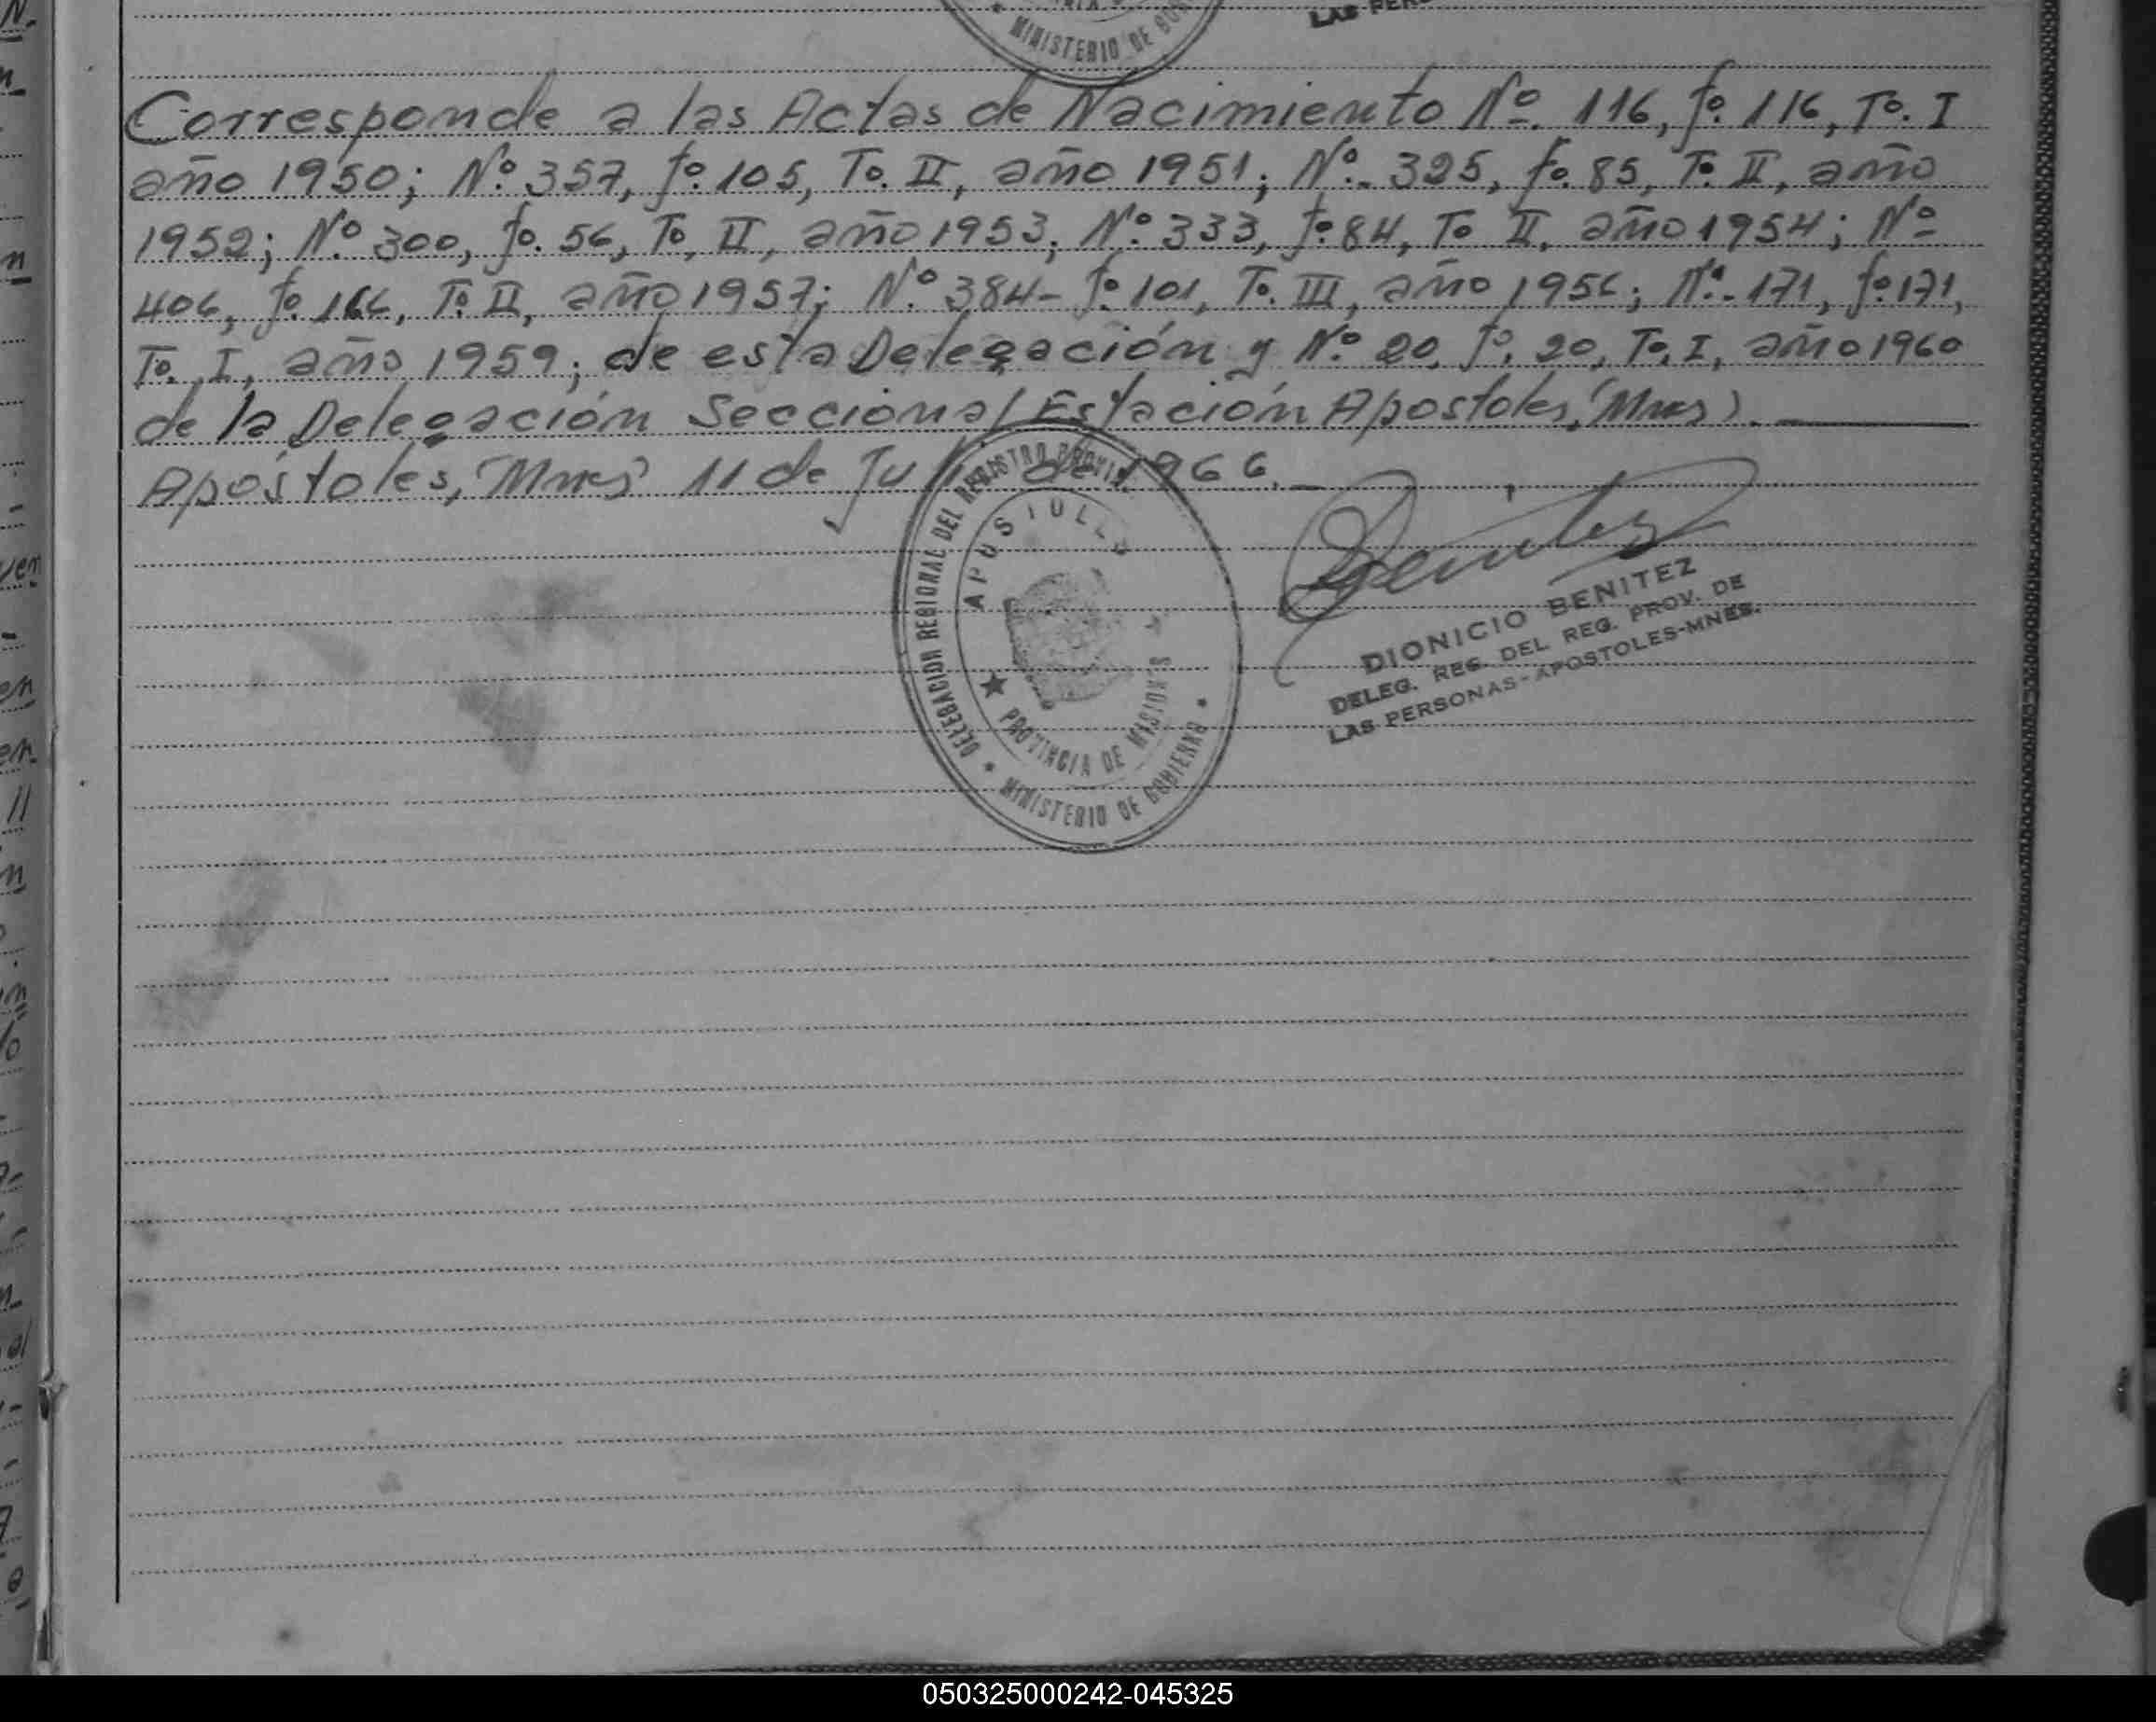 MINISTERIO DE
LAS
Corresponde a las Actas de Nacimiento Nº. 116, fº. 116, Tº. I
año 1950; Nº. 357, fº. 105, Tº. II, año 1951; Nº. 325, fº. 85, Tº. II, año
1952; Nº. 300, fº. 56, Tº. II, año 1953; Nº. 333, fº. 84, Tº II, año 1954; Nº
406, fº. 166, Tº. II, año 1957; Nº. 384- fº. 101, Tº. III, año 1956; Nº.-171, fº. 171,
Tº. I, año 1959; de esta Delegación y Nº. 20, fº. 20, Tº. I, año 1960
de la Delegación Seccional Estación Apostoles, (Mnes).
Apóstoles, (Mnes) 11 de Julio de 1966.
DELEGACION REGIONAL DEL REGISTRO
APOSTOLES
PROVINCIA DE MISIONES
MINISTERIO DE GOBIERNO
Benitez
DIONICIO BENITEZ
DELEG. REG. DEL REG. PROV. DE
LAS PERSONAS-APOSTOLES-MNES.
050325000242-045325